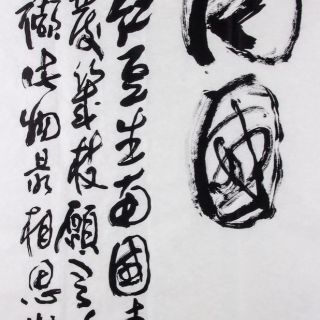 國
紅豆生南國春
發幾枝願君
擷此物最相思